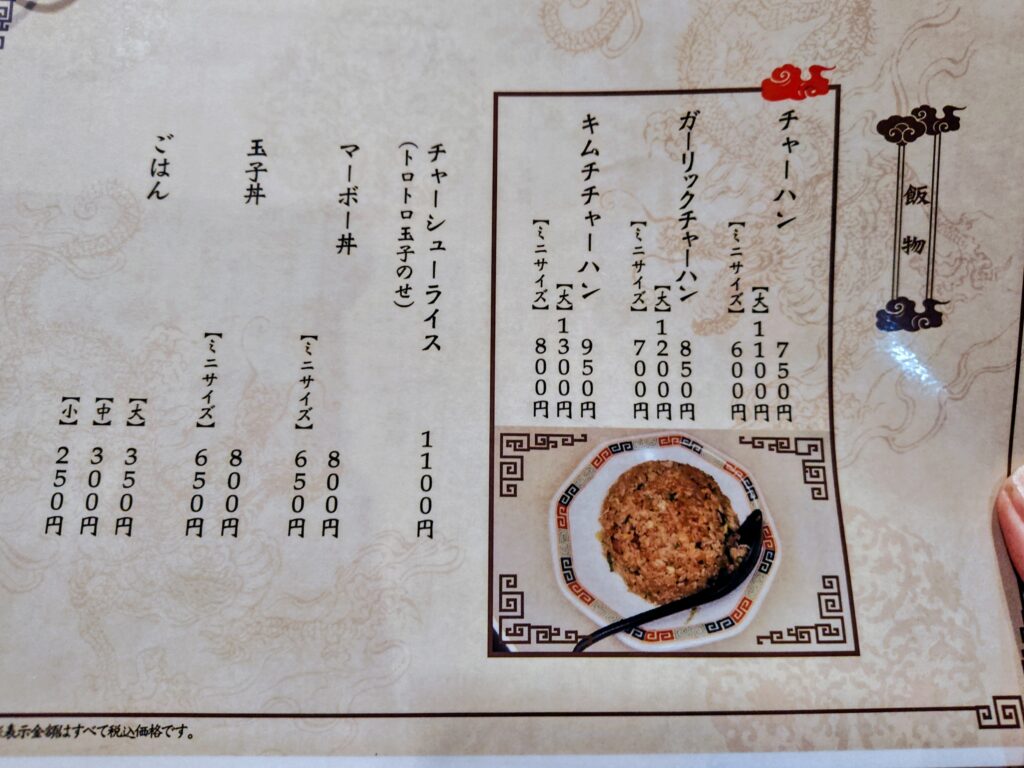 飯物
チャーハン
750円
【大】1100円
【ミニサイズ】600円
ガーリックチャーハン
850円
【大】1200円
【ミニサイズ】700円
キムチチャーハン
950円
【大】1300円
【ミニサイズ】800円
チャーシューライス
1100円
(トロトロ玉子のせ)
マーボー丼
800円
【ミニサイズ】650円
玉子丼
800円
【ミニサイズ】650円
ごはん
【大】350円
【中】300円
【小】250円
表示金額はすべて税込価格です。